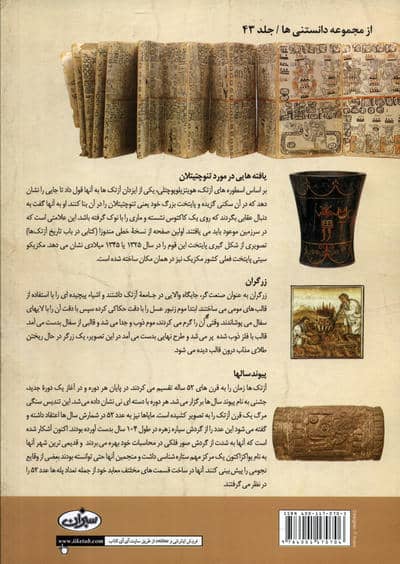 از مجموعه دانستنی ها / جلد ۴۳
یافته هایی در مورد تنوچتیتلان
بر اساس اسطوره های آزتک، هویتزیلوپوچتلی، یکی از ایزدان آزتک ها به آنها قول داد تا جایی را نشان
دهد که در آن سکنی گزیده و پایتخت بزرگ خود یعنی تنوچتیتلان را در آن بنا کنند. او به آنها گفت به
دنبال عقابی بگردند که روی یک کاکتوس نشسته و ماری را با نوک گرفته باشد. این علامتی است که
در سرزمین موعود باید می یافتند. اولین صفحه از نسخهٔ خطی مندوزا (کتابی در باب تاریخ آزتک‌ها)
تصویری از شکل گیری پایتخت این قوم را در سال ۱۳۲۵ یا ۱۳۴۵ میلادی نشان می دهد. مکزیکو
سیتی پایتخت فعلی کشور مکزیک نیز در همان مکان ساخته شده است.
زرگران
زرگران به عنوان صنعت گر، جایگاه والایی در جامعهٔ آزتک داشتند و اشیاء پیچیده ای را با استفاده از
قالب های مومی می ساختند. ابتدا موم زنبور عسل را با دقت حکاکی کرده سپس با دقت آن را با لایهای
سفال می پوشاندند. وقتی آن را گرم می کردند، موم ذوب و جدا می شد و قالبی از سفال بدست می آمد.
قالب با فلز ذوب شده پر می‌شد و طرح نهایی بدست می آمد در این تصویر، یک زرگر در حال ریختن
طلای مذاب درون قالب دیده می شود.
پیوند سالها
آزتک ها زمان را به قرن های ۵۲ ساله تقسیم می کردند. در پایان هر دوره و در آغاز یک دورهٔ جدید،
جشنی به نام پیوند سال‌ها برگزار می‌شد. هر دوره با دسته ای نی نشان می دادند. این تندیس سنگی
مرگ یک قرن آزتک را به تصویر کشیده است. مایاها نیز به عدد ۵۲ در شمارش سال ها اعتقاد داشته و
گفته می شود این عدد را از گردش سیاره زهره در طول ۱۰۴ سال بدست آورده بودند. اکنون آشکار شده
است که آنها به شدت از گردش صور فلکی در محاسبات خود بهره می بردند و قدیمی ترین شهر آنها
به نام یواکزاکتون یک مرکز مهم ستاره شناسی داشت و منجمین آنها حتی توانستند بعضی از وقایع
نجومی را پیش بینی کنند. آنها در ساخت قسمت های مختلف معابد خود از جمله تعداد پله ها عدد ۵۲ را
در نظر می گرفتند.
سبزان
www.iiketab.com
فروش اینترنتی و عطالعه از طریق سایت آی آی کتاب
ISBN 600-117-070-1
9786001170706